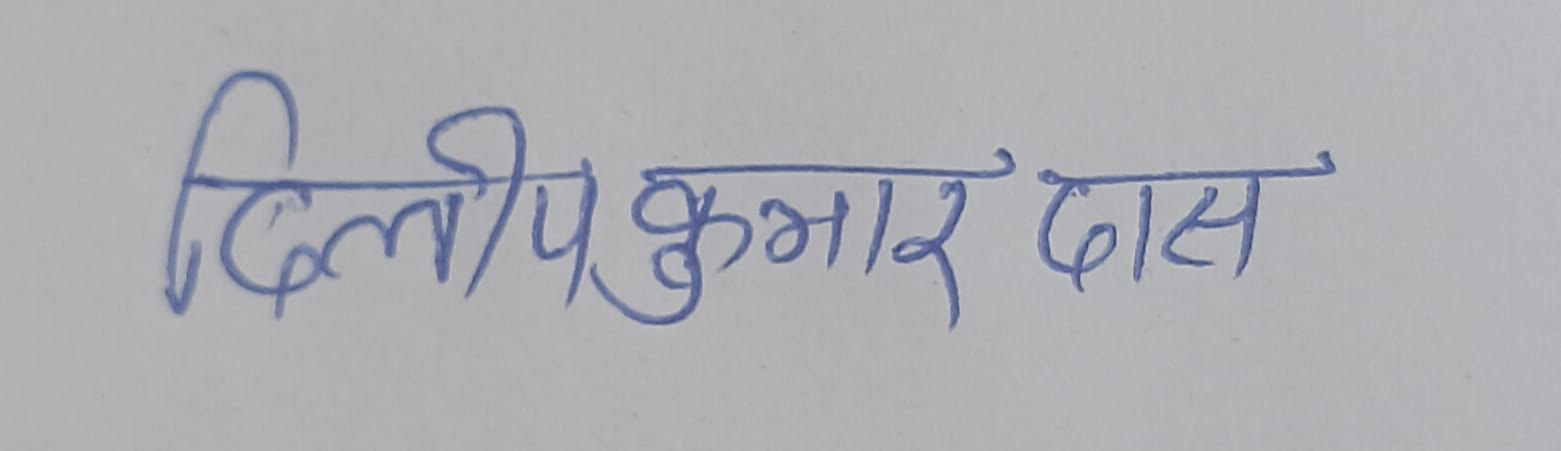 दिलीप कुमार दास